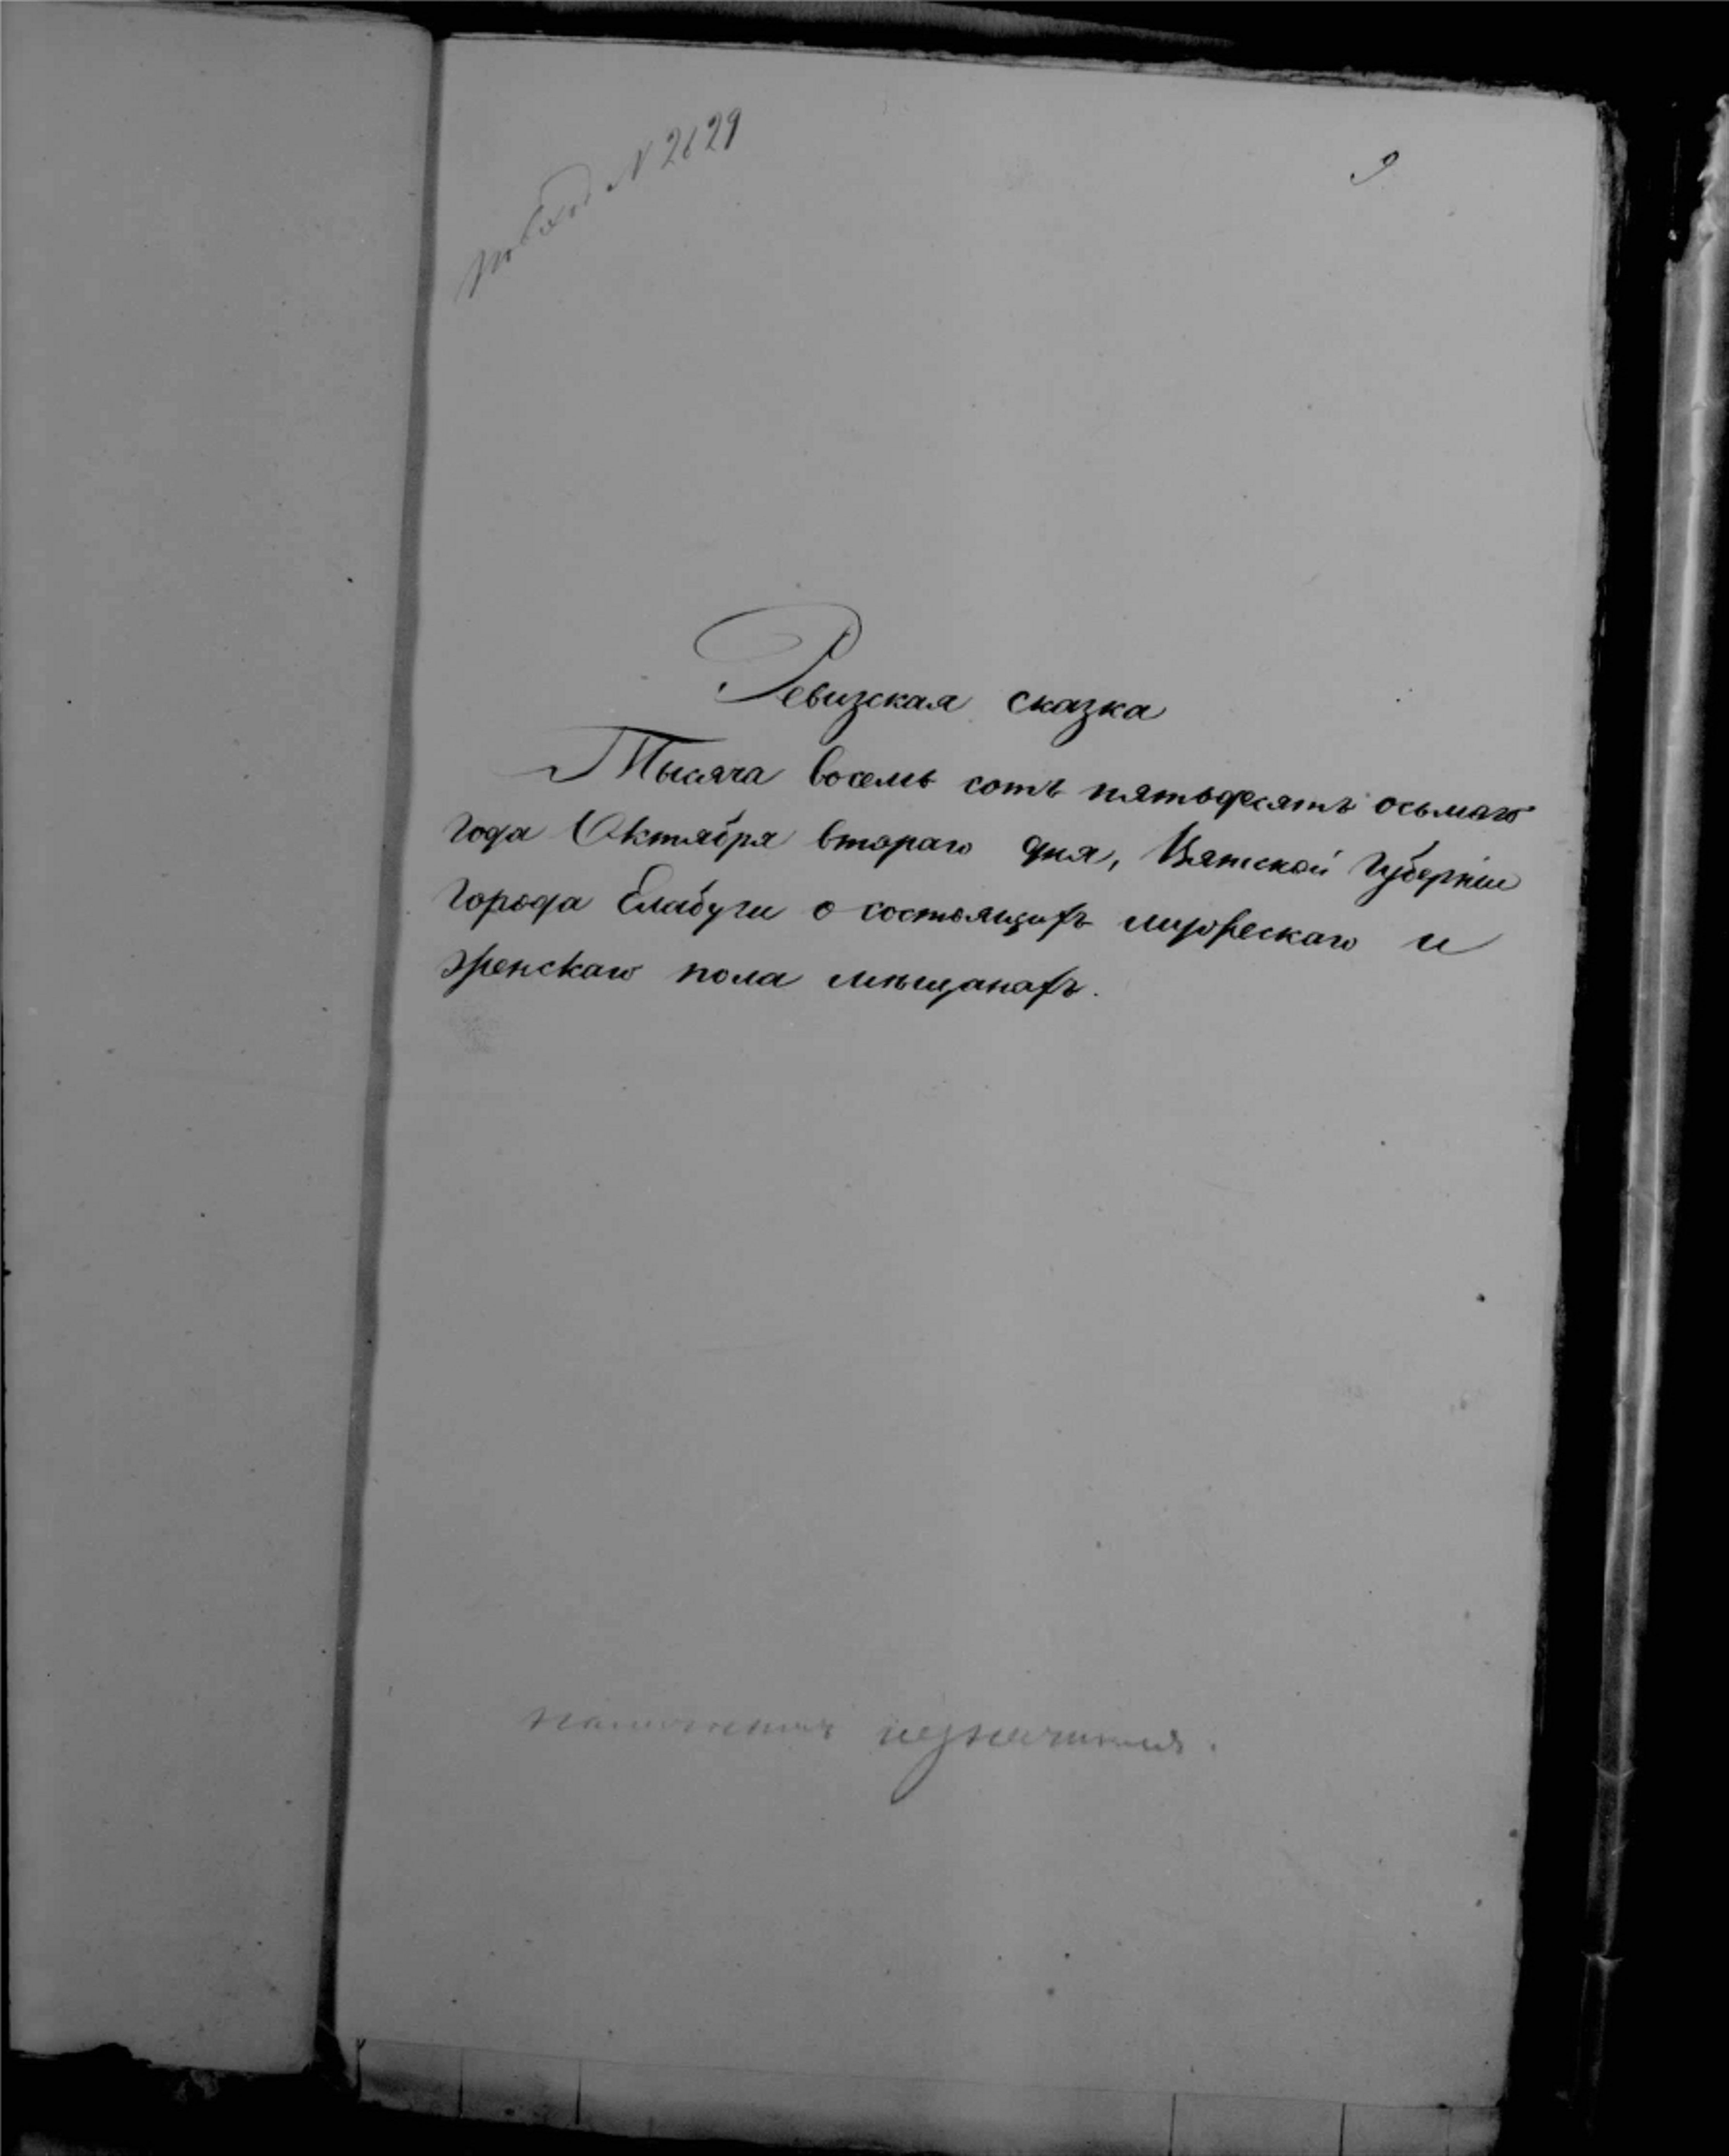 № 2629
9
Ревизская сказка
Тысяча восемь сотъ пятьдесятъ осьмаго
года Октября втораго дня, Вятской Губерніи
города Елабуги о состоящихъ мужескаго и
женскаго пола мѣщанахъ.